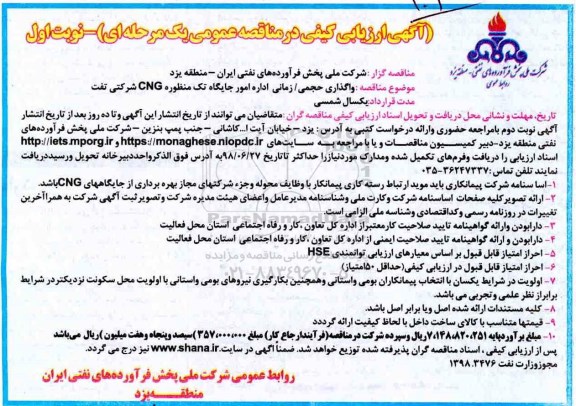 (آگهی ارزیابی کیفی در مناقصه عمومی یک مرحله ای) - نوبت اول
شرکت ملی پخش فرآورده‌های نفتی - منطقه یزد
روابط عمومی
مناقصه گزار: شرکت ملی پخش فرآورده‌های نفتی ایران - منطقه یزد
موضوع مناقصه: واگذاری حجمی/ زمانی اداره امور جایگاه تک منظوره CNG شرکتی تفت
مدت قرارداد: یکسال شمسی
تاریخ، مهلت و نشانی محل دریافت و تحویل اسناد ارزیابی کیفی مناقصه گران: متقاضیان می توانند از تاریخ انتشار این آگهی و تا ده روز بعد از تاریخ انتشار
آگهی نوبت دوم با مراجعه حضوری و ارائه درخواست کتبی به آدرس: یزد - خیابان آیت ا... کاشانی - جنب پمپ بنزین - شرکت ملی پخش فرآورده‌های
نفتی منطقه یزد - دبیر کمیسیون مناقصات و یا با مراجعه به سایت های https://monaghese.niopdc.ir و http://iets.mporg.ir
اسناد ارزیابی را دریافت و فرم‌های تکمیل شده و مدارک مورد نیاز را حداکثر تا تاریخ ۹۸/۰۶/۲۷ به آدرس فوق الذکر واحد دبیرخانه تحویل و رسید دریافت
نمایند تلفن تماس: ۳۶۲۴۷۳۳۷-۰۳۵
۱- اساسنامه شرکت پیمانکاری باید موید ارتباط رسته کاری پیمانکار با وظایف محوله وجزء شرکتهای مجاز بهره برداری از جایگاههای CNG باشد.
۲- ارائه تصویر کلیه صفحات اساسنامه شرکت وکارت ملی وشناسنامه مدیرعامل واعضای هیئت مدیره شرکت وتصویر ثبت آگهی شرکت به همراه آخرین
تغییرات در روزنامه رسمی وکد اقتصادی وشناسه ملی الزامی است.
۳- دارا بودن و ارائه گواهینامه تایید صلاحیت کار معتبر از اداره کل تعاون، کار و رفاه اجتماعی استان محل فعالیت
۴- دارا بودن و ارائه گواهینامه تایید صلاحیت ایمنی از اداره کل تعاون، کار و رفاه اجتماعی استان محل فعالیت
۵- احراز امتیاز قابل قبول بر اساس معیارهای ارزیابی توانمندی HSE
۶- احراز امتیاز قابل قبول در ارزیابی کیفی (حداقل ۵۰ امتیاز)
۷- اولویت در شرایط یکسان با انتخاب پیمانکاران بومی واستانی وهمچنین بکارگیری نیروهای بومی واستانی با اولویت محل سکونت نزدیکتر در شرایط
برابر از نظر علمی و تجربی می باشد.
۸- کلیه مستندات ارائه شده اصل ویا برابر اصل باشد.
۹- قیمتها متناسب با کالای ساخت داخل با لحاظ کیفیت ارائه گردد
۱۰- مبلغ برآورد پایه ۷،۱۴۸،۸۲۰،۲۵۱ ریال وسپرده شرکت در مناقصه (فرآیند ارجاع کار) مبلغ ۳۵۷،۰۰۰،۰۰۰ (سیصد وپنجاه وهفت میلیون) ریال می‌باشد
پس از ارزیابی کیفی، اسناد مناقصه گران پذیرفته شده توزیع خواهد شد. ضمناً آگهی در سایت www.shana.ir نیز درج می گردد.
مجوز وزارت نفت ۱۳۹۸.۳۴۷۶
روابط عمومی شرکت ملی پخش فرآورده‌های نفتی ایران
منطقه یزد
ParsNamadData
۰۲۱-۸۸۳۴۹۶۷۰